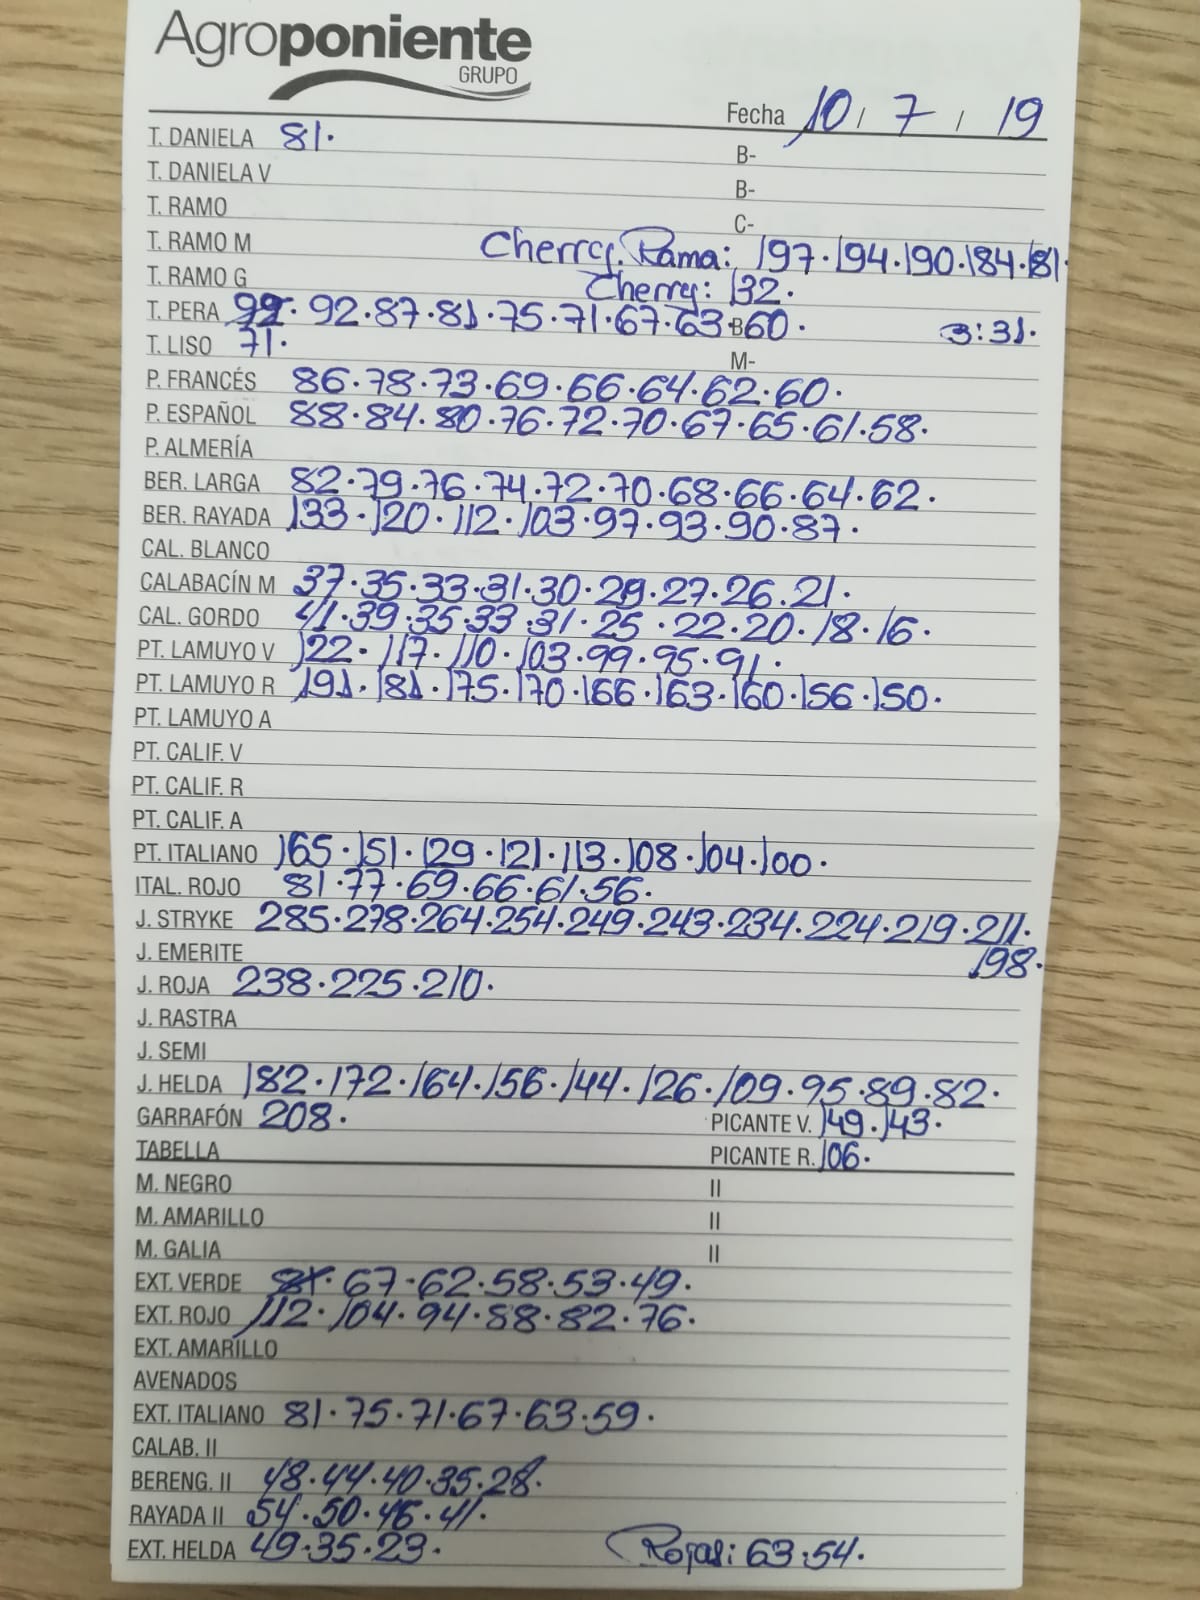 Agroponiente
GRUPO
Fecha 10 / 7 / 19
T. DANIELA 81. B-
T. DANIELA V B-
T. RAMO C-
T. RAMO M Cherry Rama: 197.194.190.184.181.
T. RAMO G Cherry: 132.
T. PERA 99. 92.87.81.75.71.67.63.60. B- 3:31.
T. LISO 71. M-
P. FRANCÉS 86.78.73.69.66.64.62.60.
P. ESPAÑOL 88.84.80.76.72.70.67.65.61.58.
P. ALMERÍA
BER. LARGA 82.79.76.74.72.70.68.66.64.62.
BER. RAYADA 133.120.112.103.97.93.90.87.
CAL. BLANCO
CALABACÍN M 37.35.33.31.30.29.27.26.21.
CAL. GORDO 41.39.35.33.31.25.22.20.18.16.
PT. LAMUYO V 122.117.110.103.99.95.91.
PT. LAMUYO R 191.181.175.170.166.163.160.156.150.
PT. LAMUYO A
PT. CALIF. V
PT. CALIF. R
PT. CALIF. A
PT. ITALIANO 165.151.129.121.113.108.104.100.
ITAL. ROJO 81.77.69.66.61.56.
J. STRYKE 285.278.264.254.249.243.234.224.219.211.
J. EMERITE 198.
J. ROJA 238.225.210.
J. RASTRA
J. SEMI
J. HELDA 182.172.164.156.144.126.109.95.89.82.
GARRAFÓN 208. PICANTE V. 149.143.
TABELLA PICANTE R. 106.
M. NEGRO II
M. AMARILLO II
M. GALIA II
EXT. VERDE 67.62.58.53.49.
EXT. ROJO 112.104.94.88.82.76.
EXT. AMARILLO
AVENADOS
EXT. ITALIANO 81.75.71.67.63.59.
CALAB. II
BERENG. II 48.44.40.35.28.
RAYADA II 54.50.46.41.
EXT. HELDA 49.35.23. Rojas: 63.54.